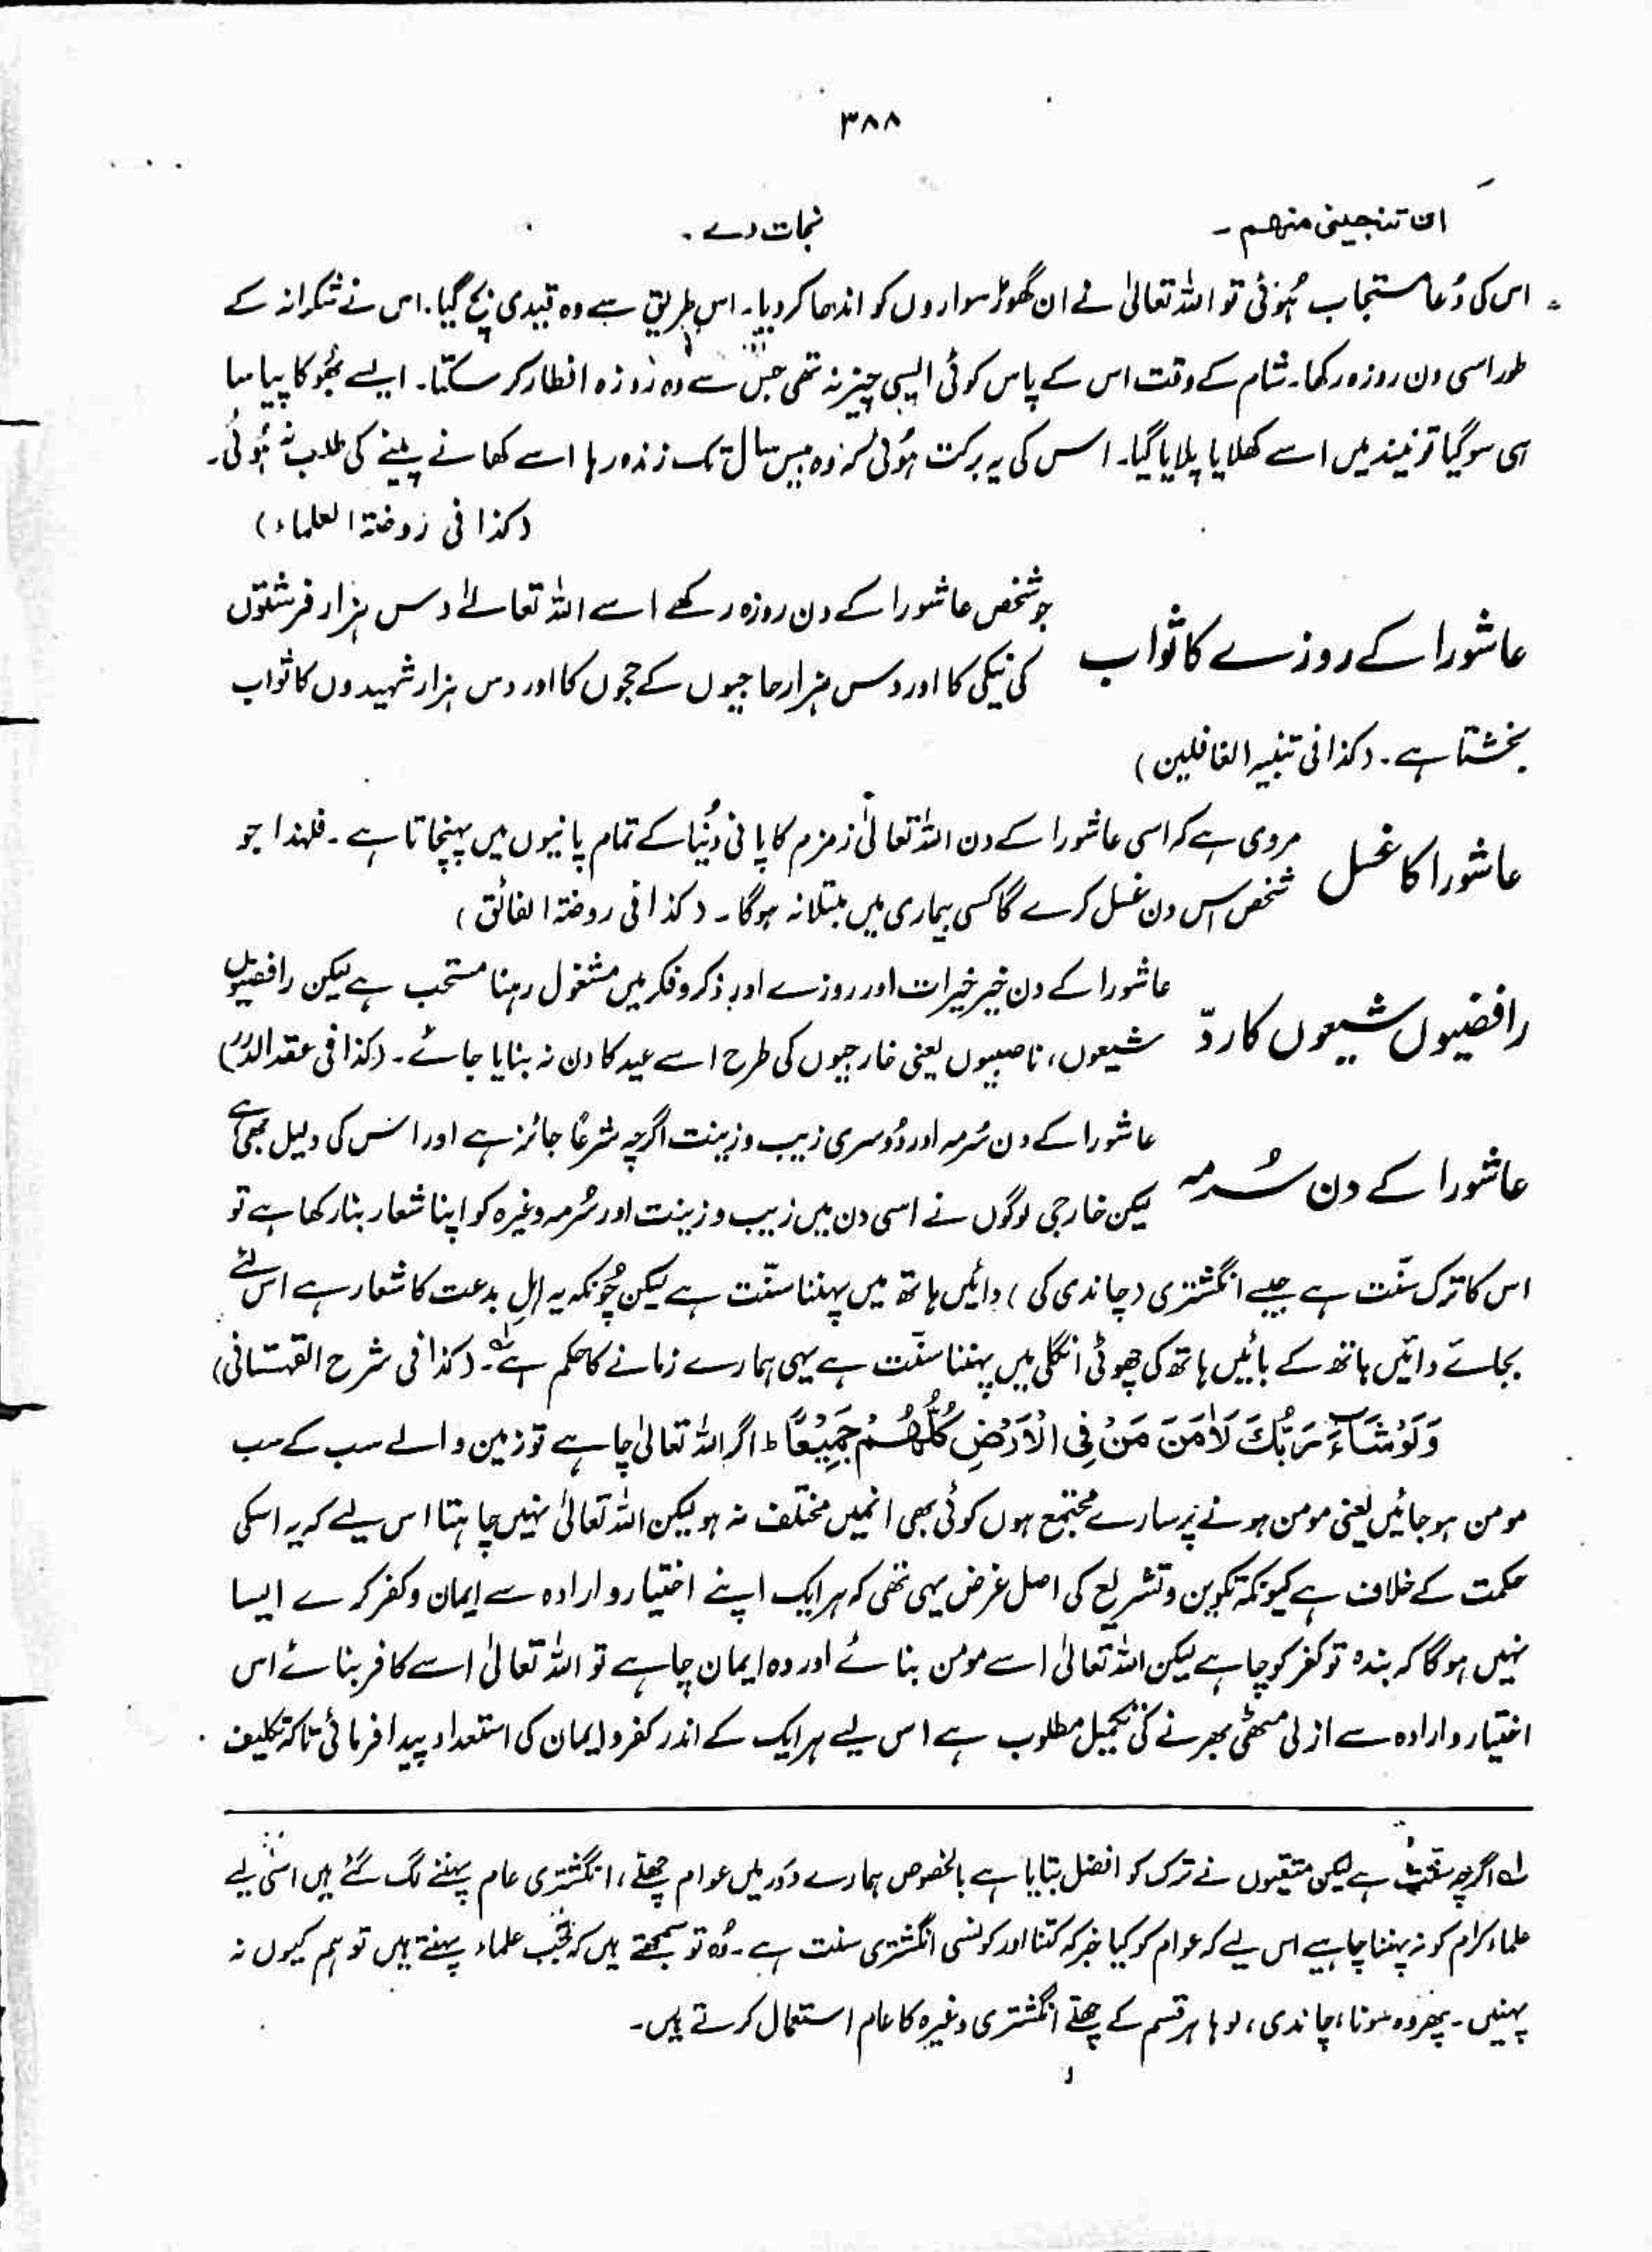 ۳۸۸
ان تنجینی منھم ۔ نجات دے ۔
اس کی دُعا مستجاب ہُوئی تو اللہ تعالیٰ نے ان گھوڑ سواروں کو اندھا کر دیا۔ اس طریق سے وہ قیدی بچ گیا۔ اس نے شکرانہ کے
طور اسی دن روزہ رکھا۔ شام کے وقت اس کے پاس کوئی ایسی چیز نہ تھی جس سے وہ روزہ افطار کر سکتا۔ ایسے بھُوکا پیاسا
ہی سو گیا تو نیند میں اسے کھلایا پلایا گیا۔ اس کی یہ برکت ہُوئی کہ وہ بیس سال تک زندہ رہا اسے کھانے پینے کی طلب نہ ہُوئی۔
(کذا فی روضۃ العلماء)
عاشورا کے روزے کا ثواب
جو شخص عاشورا کے دن روزہ رکھے اسے اللہ تعالےٰ دس ہزار فرشتوں
کی نیکی کا اور دس ہزار حاجیوں کے حجوں کا اور دس ہزار شہیدوں کا ثواب
بخشتا ہے ۔ (کذا فی تنبیہ الغافلین)
عاشورا کا غسل
مروی ہے کہ اسی عاشورا کے دن اللہ تعالیٰ زمزم کا پانی دُنیا کے تمام پانیوں میں پہنچاتا ہے ۔ فلہٰذا جو
شخص اس دن غسل کرے گا کسی بیماری میں مبتلا نہ ہو گا ۔ (کذا فی روضۃ الفائق)
رافضیوں شیعوں کا ردّ
عاشورا کے دن خیر خیرات اور روزے اور ذکر و فکر میں مشغول رہنا مستحب ہے لیکن رافضیوں
شیعوں، ناصبیوں یعنی خارجیوں کی طرح اسے عید کا دن نہ بنایا جائے ۔ (کذا فی عقد الدرر)
عاشورا کے دن سُرمہ
عاشورا کے دن سُرمہ اور دُوسری زیب و زینت اگرچہ شرعًا جائز ہے اور اس کی دلیل بھی ہے
لیکن خارجی لوگوں نے اسی دن میں زیب و زینت اور سُرمہ وغیرہ کو اپنا شعار بنا رکھا ہے تو
اس کا ترک سنّت ہے جیسے انگشتری (چاندی کی) دائیں ہاتھ میں پہننا سنّت ہے لیکن چُونکہ یہ اہلِ بدعت کا شعار ہے اس لئے
بجائے دائیں ہاتھ کے بائیں ہاتھ کی چھوٹی انگلی میں پہننا سنّت ہے یہی ہمارے زمانے کا حکم ہے لہ۔ (کذا فی شرح القہستانی)
وَلَوْ شَآءَ رَبُّكَ لَاٰمَنَ مَنْ فِی الْاَرْضِ كُلُّهُمْ جَمِيْعًا ط اگر اللہ تعالیٰ چاہے تو زمین والے سب کے سب
مومن ہو جائیں یعنی مومن ہونے پر سارے مجتمع ہوں کوئی بھی انمیں مختلف نہ ہو لیکن اللہ تعالیٰ نہیں چاہتا اس لیے کہ یہ اسکی
حکمت کے خلاف ہے کیونکہ تکوین و تشریع کی اصل غرض یہی تھی کہ ہر ایک اپنے اختیار و ارادہ سے ایمان و کفر کرے ایسا
نہیں ہو گا کہ بندہ تو کفر کو چاہے لیکن اللہ تعالیٰ اسے مومن بنائے اور وہ ایمان چاہے تو اللہ تعالیٰ اسے کافر بنائے اس
اختیار و ارادہ سے ازلی مٹھی بھرنے کی تکمیل مطلوب ہے اس لیے ہر ایک کے اندر کفر و ایمان کی استعداد پیدا فرمائی تاکہ تکلیف
لہ اگرچہ سنّت ہے لیکن متقیوں نے ترک کو افضل بتایا ہے بالخصوص ہمارے دَور میں عوام چھلّے، انگشتری عام پہننے لگ گئے ہیں اسی لیے
علماء کرام کو نہ پہننا چاہیے اس لیے کہ عوام کو کیا خبر کہ کتنا اور کونسی انگشتری سنت ہے ۔ وُہ تو سمجھتے ہیں کہ جب علماء پہنتے ہیں تو ہم کیوں نہ
پہنیں ۔ پھر وہ سونا، چاندی، لوہا ہر قسم کے چھلّے انگشتری وغیرہ کا عام استعمال کرتے ہیں۔